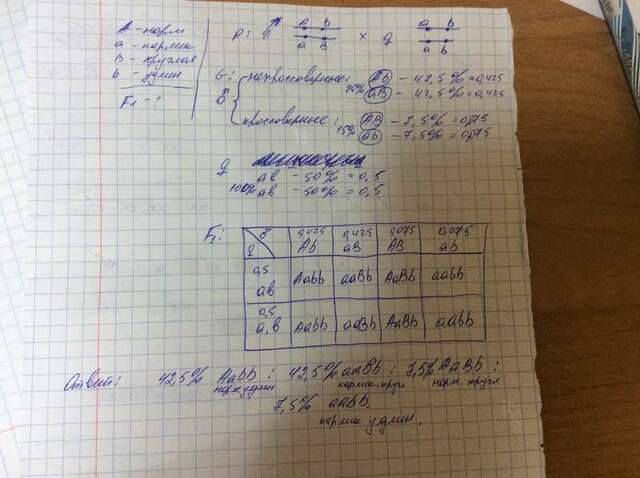 A - норм
a - карлик
B - круглая
b - удлин
F1 - ?
P: ♀ A b a B × ♂ a b a b
G: некроссоверные: 85% Ab - 42,5% = 0,425
aB - 42,5% = 0,425
кроссоверные: 15% AB - 7,5% = 0,075
ab - 7,5% = 0,075
100% ab - 50% = 0,5
ab - 50% = 0,5
F1:
0,425 0,425 0,075 0,075
Ab aB AB ab
0,5 ab Aabb aaBb AaBb aabb
0,5 a,b Aabb aaBb AaBb aabb
Ответ: 42,5% Aabb : 42,5% aaBb : 7,5% AaBb :
норм, удлин карлик, кругл норм. кругл
7,5% aabb
карлик удлин.